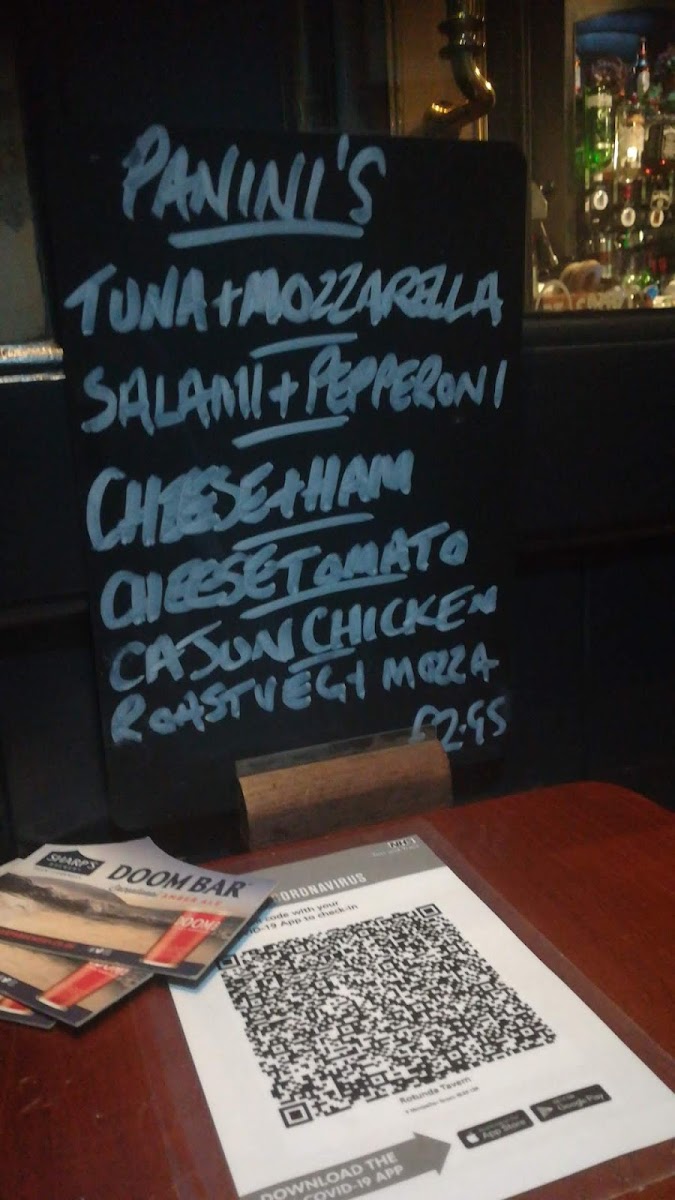 PANINI'S
TUNA + MOZZARELLA
SALAMI + PEPPERONI
CHEESE + HAM
CHEESE TOMATO
CAJUN CHICKEN
ROAST VEG + MOZZA
£2.95
SHARP'S
DOOM BAR
AMBER ALE
DOOM
NHS
CORONAVIRUS
code with your
App to check-in
Rotunda Tavern
App Store
Google Play
DOWNLOAD THE
COVID-19 APP